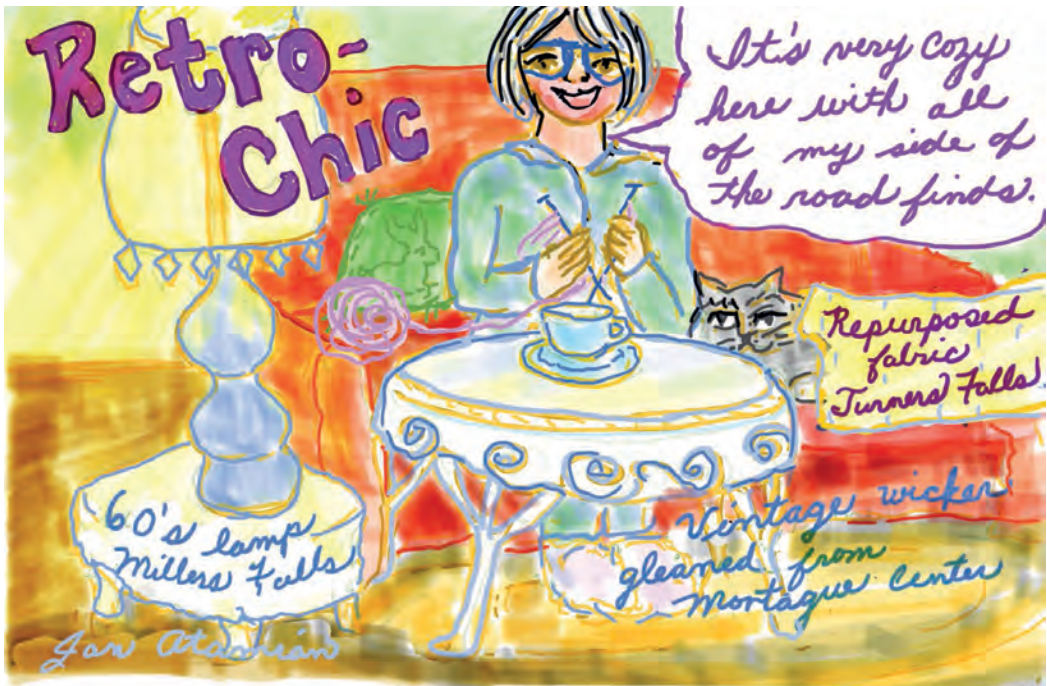 Retro-
Chic
It's very cozy
here with all
of my side of
the road finds.
Repurposed
fabric
Turners Falls
60's lamp
Millers Falls
Vintage wicker
gleaned from
Montague Center
Jan Atamian